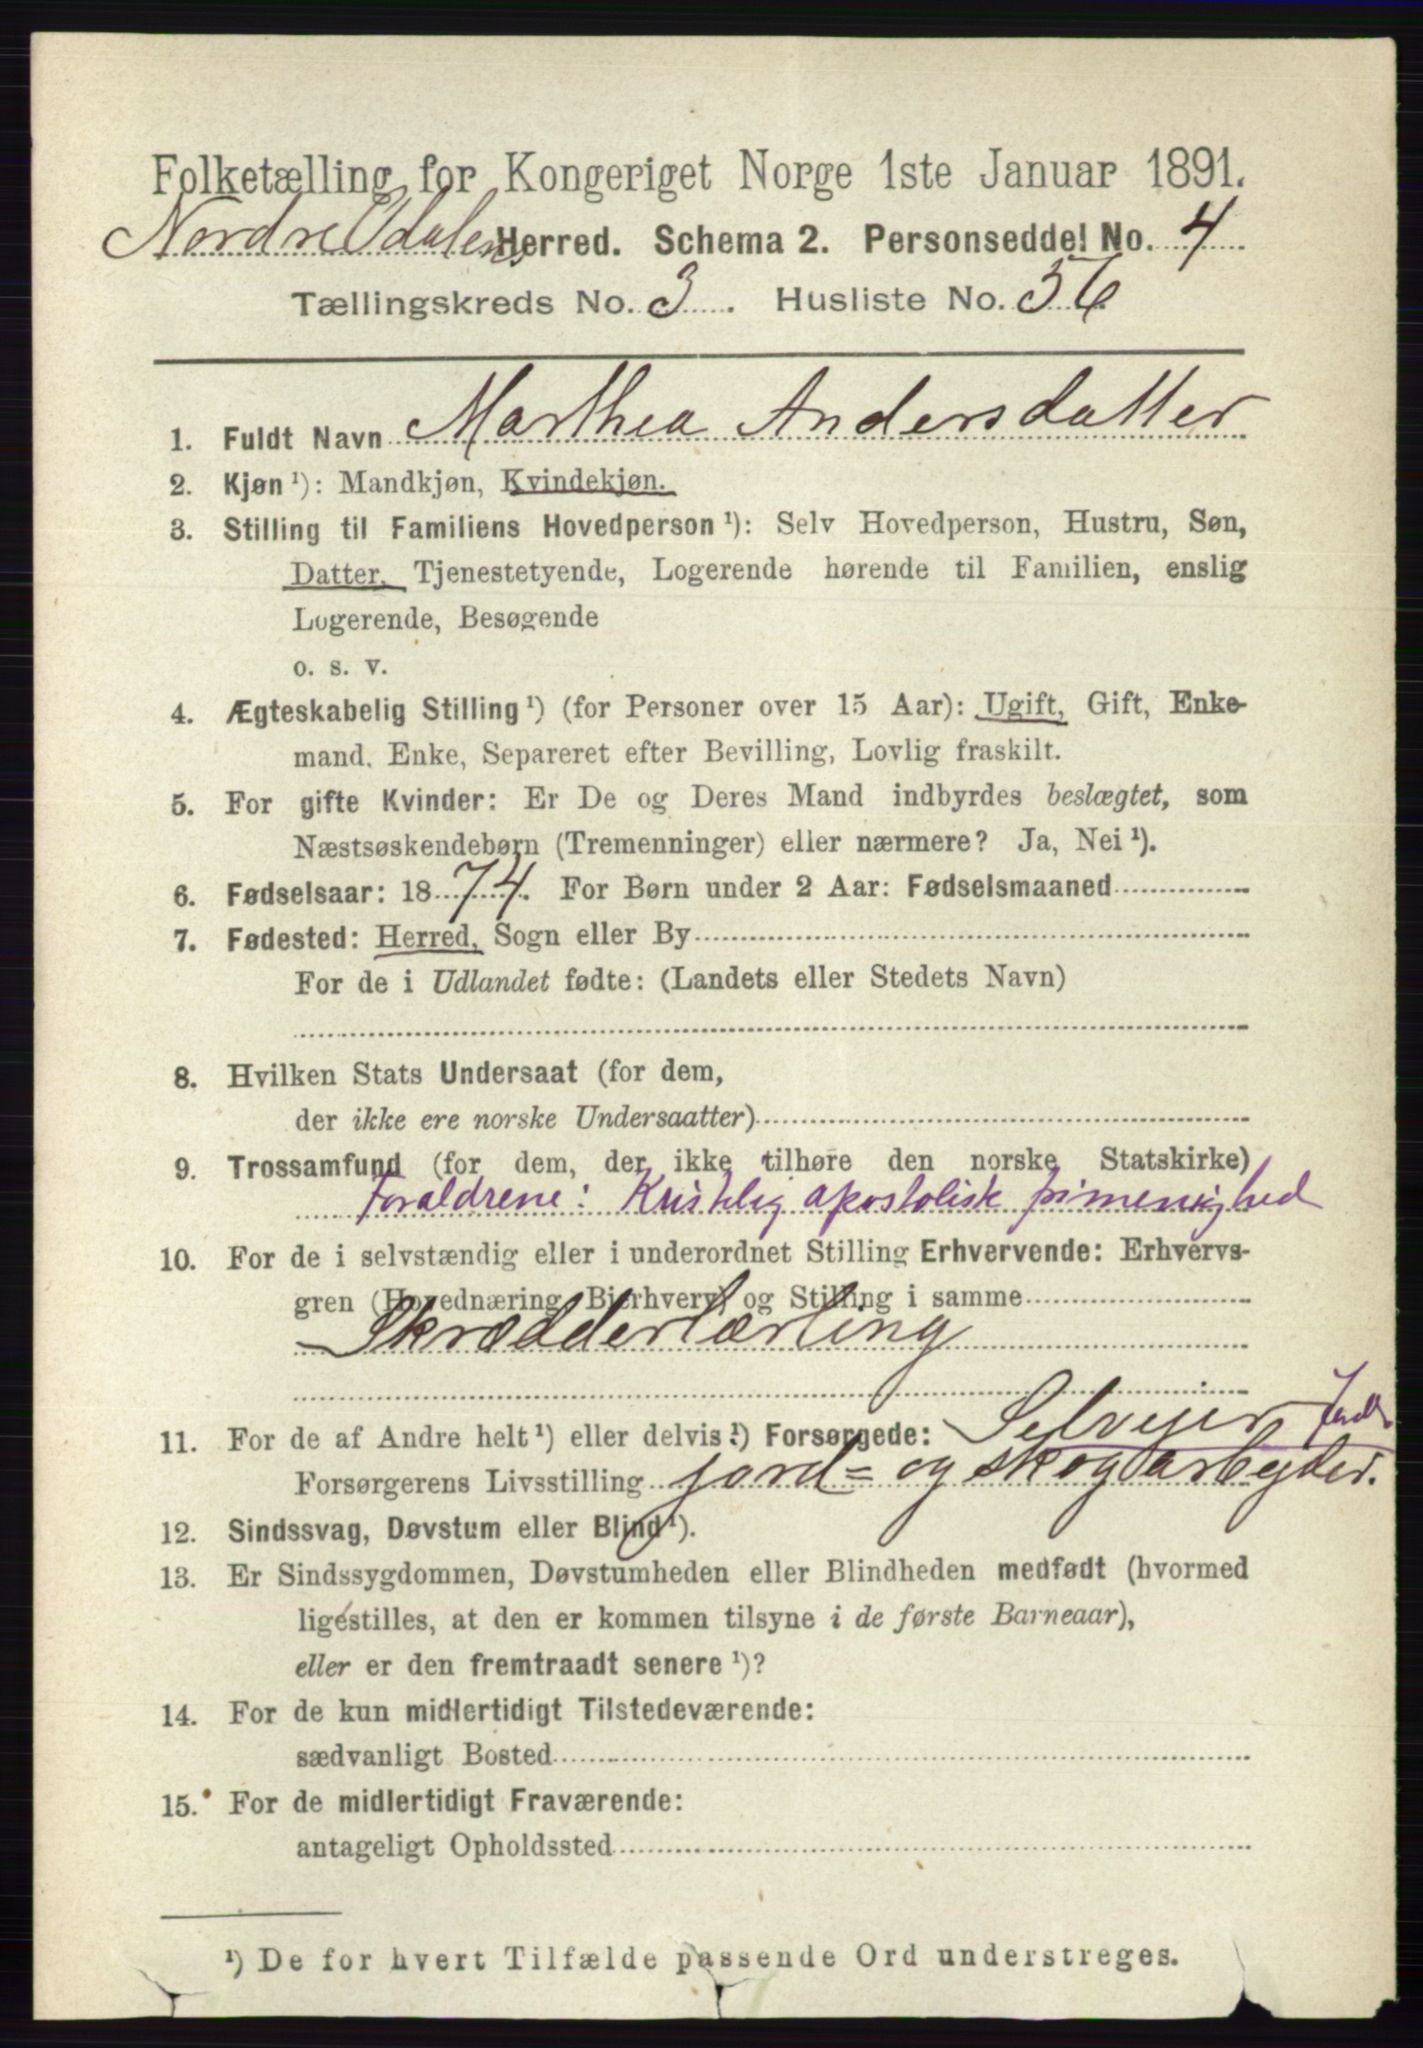 Folketælling for Kongeriget Norge 1ste Januar 1891.
Nordre Odalens Herred. Schema 2. Personseddel No. 4
Tællingskreds No. 3. Husliste No. 56
1. Fuldt Navn Marthea Andersdatter
2. Kjøn ¹): Mandkjøn, Kvindekjøn.
3. Stilling til Familiens Hovedperson ¹): Selv Hovedperson, Hustru, Søn,
Datter, Tjenestetyende, Logerende hørende til Familien, enslig
Logerende, Besøgende
o. s. v.
4. Ægteskabelig Stilling ¹) (for Personer over 15 Aar): Ugift, Gift, Enke-
mand, Enke, Separeret efter Bevilling, Lovlig fraskilt.
5. For gifte Kvinder: Er De og Deres Mand indbyrdes beslægtet, som
Næstsøskendebørn (Tremenninger) eller nærmere? Ja, Nei ¹).
6. Fødselsaar: 1874. For Børn under 2 Aar: Fødselsmaaned
7. Fødested: Herred, Sogn eller By
For de i Udlandet fødte: (Landets eller Stedets Navn)
8. Hvilken Stats Undersaat (for dem,
der ikke ere norske Undersaatter)
9. Trossamfund (for dem, der ikke tilhøre den norske Statskirke)
Foraldrene: Kristelig apostolisk
10. For de i selvstændig eller i underordnet Stilling Erhvervende: Erhvervs-
gren (Hovednæring, Bierhverv) og Stilling i samme
Skrædderlærling
11. For de af Andre helt ¹) eller delvis ¹) Forsørgede: Selvejer,
Forsørgerens Livsstilling jord= og skogarbejder.
12. Sindssvag, Døvstum eller Blind ¹).
13. Er Sindssygdommen, Døvstumheden eller Blindheden medfødt (hvormed
ligestilles, at den er kommen tilsyne i de første Barneaar),
eller er den fremtraadt senere ¹)?
14. For de kun midlertidigt Tilstedeværende:
sædvanligt Bosted
15. For de midlertidigt Fraværende:
antageligt Opholdssted
¹) De for hvert Tilfælde passende Ord understreges.